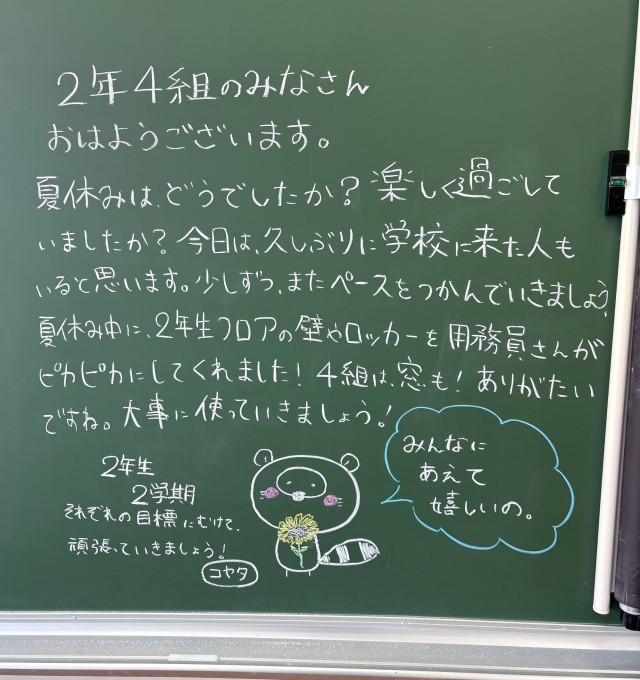 2年4組のみなさん
おはようございます。
夏休みは、どうでしたか？楽しく過ごして
いましたか？今日は、久しぶりに学校に来た人も
いると思います。少しずつ、またペースをつかんでいきましょう。
夏休み中に、2年生フロアの壁やロッカーを用務員さんが
ピカピカにしてくれました！4組は、窓も！ありがたい
ですね。大事に使っていきましょう！
2年生
2学期
それぞれの目標にむけて、
頑張っていきましょう！
コヤタ
みんなに
あえて
嬉しいの。